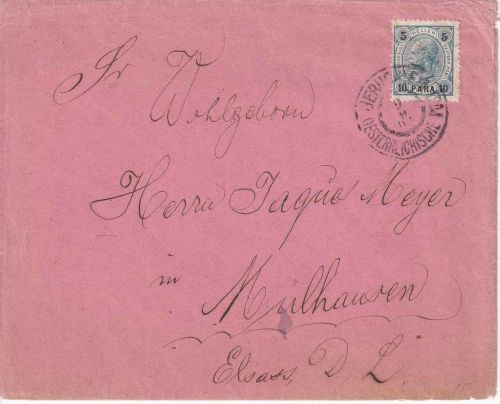 5 5
10 PARA 10
JERUSALEM
OESTERREICHISCHE
Sr
Wohlgeborn
Herrn Jaques Meyer
in
Mülhausen
Elsass, D. L.
15